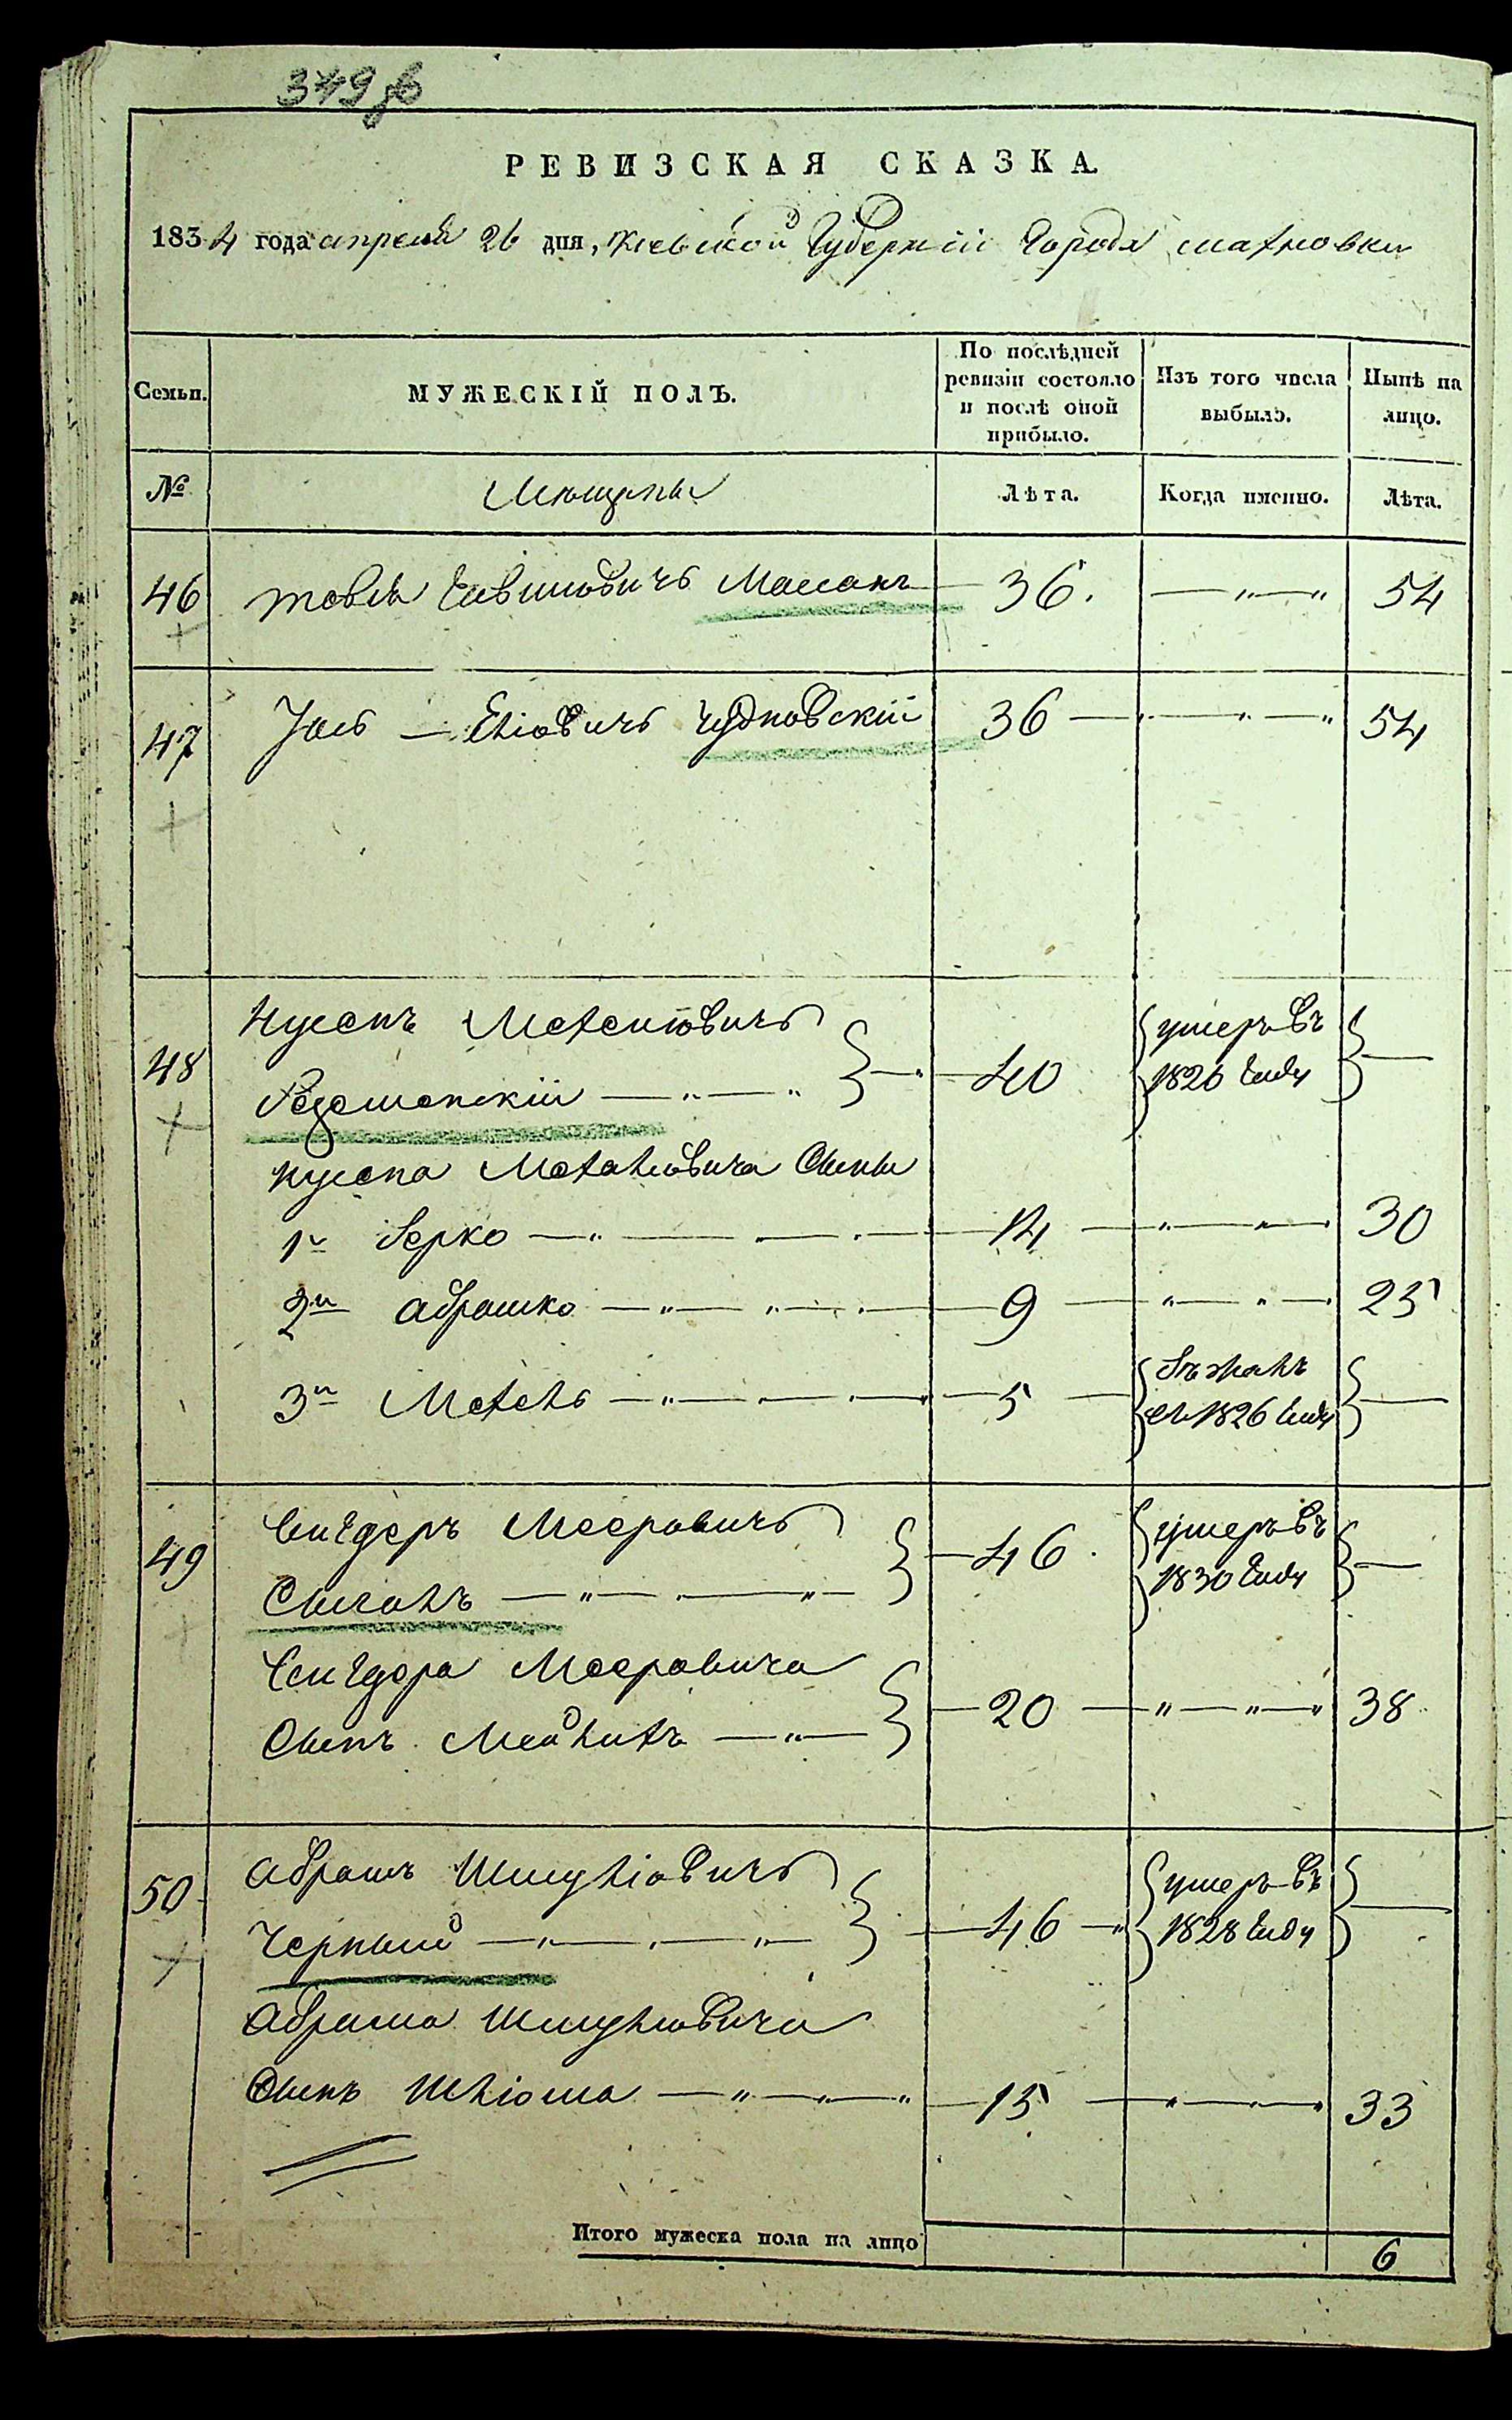 349 об
РЕВИЗСКАЯ СКАЗКА.
1834 года апреля 26 дня, Киевской Губерніи Города Махновки
Семьи. МУЖЕСКІЙ ПОЛЪ. По послѣдней ревизіи состояло и послѣ оной прибыло. Изъ того числа выбыло. Нынѣ на лицо.
№ Мещаны Лѣта. Когда именно. Лѣта.
46 Товія Масланъ 36. 54
47 Іось Еліовичъ Чудновскій 36 54
48 Нусенъ Мехелювичъ 40 умеръ въ
1826 Году
Нусена Мехелювича Сыны
1й Берко 14 30
2й Абрашко 9 25
3й Мехель 5 Бѣжалъ
въ 1826 Году
49 Сендеръ Мееровичъ 46 умеръ въ
Цыганъ 1830 Году
Сендера Мееровича 20 38
Сынъ Мейлихъ
50 Абрамъ Шмуліовичъ 46 умеръ въ
Черный 1828 Году
Абрама Шмулювича
Сынъ Шліома 15 33
Итого мужеска пола на лицо 6